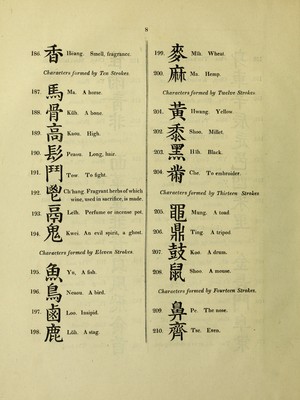 8
186. 香 Hëang. Smell, fragrance.
Characters formed by Ten Strokes.
187. 馬 Ma. A horse.
188. 骨 Küh. A bone.
189. 高 Kaou. High.
190. 髟 Peaou. Long, hair.
191. 鬥 Tow. To fight.
192. 鬯 Ch'hang. Fragrant herbs of which
wine, used in sacrifice, is made.
193. 鬲 Leih. Perfume or incense pot.
194. 鬼 Kwei. An evil spirit, a ghost.
Characters formed by Eleven Strokes.
195. 魚 Yu. A fish.
196. 鳥 Neaou. A bird.
197. 鹵 Loo. Insipid.
198. 鹿 Lüh. A stag.
199. 麥 Mih. Wheat.
200. 麻 Ma. Hemp.
Characters formed by Twelve Strokes.
201. 黃 Hwang. Yellow.
202. 黍 Shoo. Millet.
203. 黑 Hih. Black.
204. 黹 Che. To embroider.
Characters formed by Thirteen Strokes.
205. 黽 Mung. A toad.
206. 鼎 Ting. A tripod.
207. 鼓 Koo. A drum.
208. 鼠 Shoo. A mouse.
Characters formed by Fourteen Strokes.
209. 鼻 Pe. The nose.
210. 齊 Tse. Even.